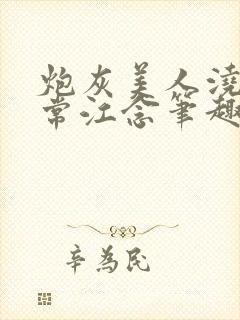 炮灰美人浇
常江念笔趣
辛为民